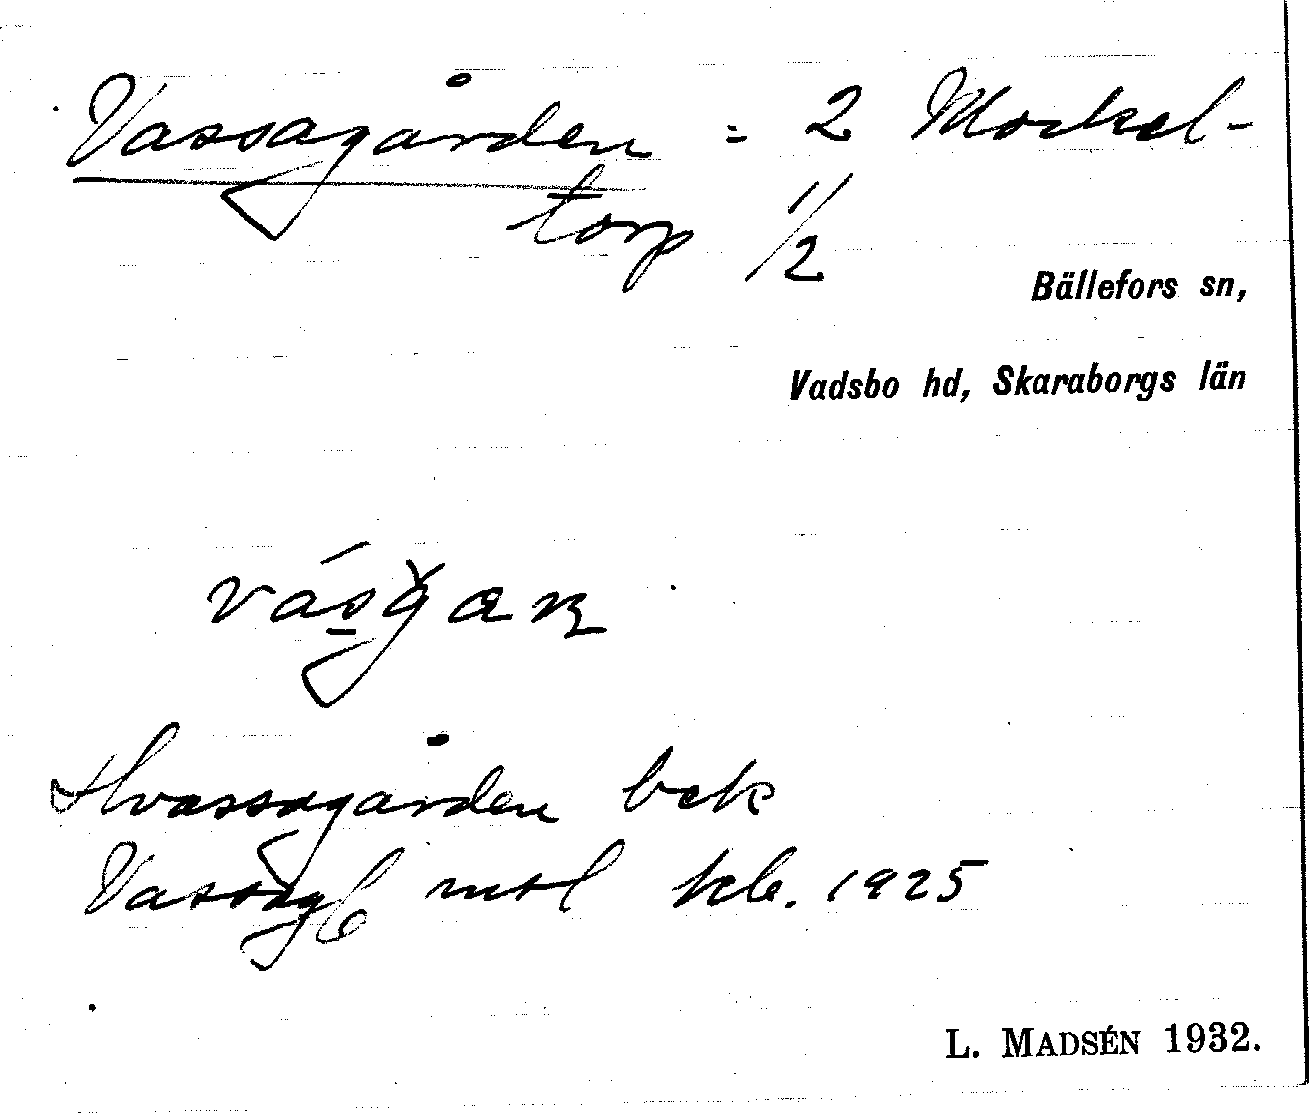 Vassagården = 2 Mockel-
torp 1/2
Bällefors sn,
Vadsbo hd, Skaraborgs län
Hvassagården bek
mtl kb. 1925
L. MADSÉN 1932.